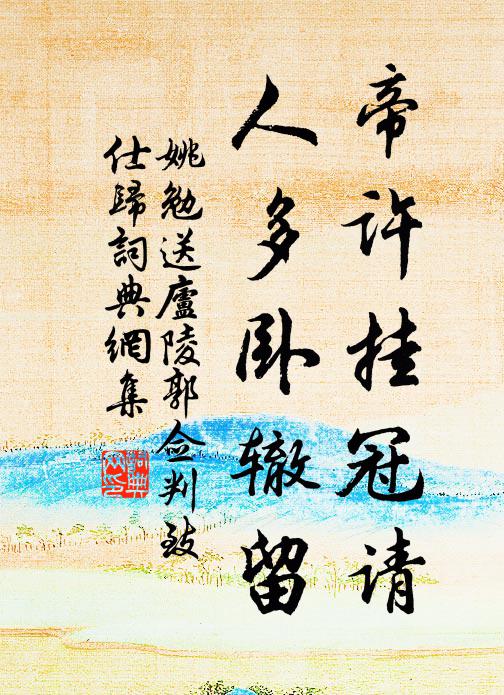 帝许挂冠请
人多卧辙留
姚勉送廬陵郭佥判致
仕歸詞典網集